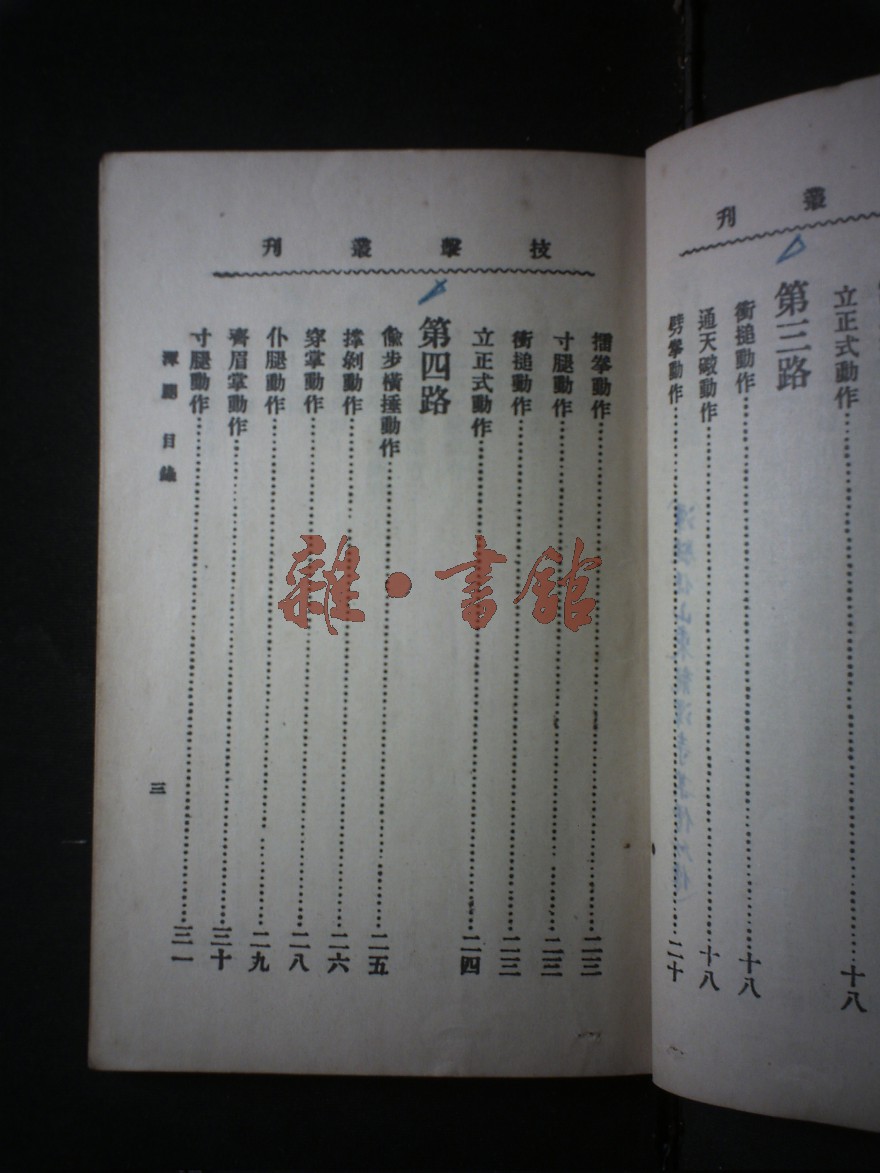 叢刊
立正式動作……十八
第三路
衝搥動作……十八
通天礮動作……十八
劈拳動作……二十
技擊叢刊
擂拳動作……二三
寸腿動作……二三
衝搥動作……二三
立正式動作……二四
第四路
偸步橫捶動作……二五
撑剁動作……二六
穿掌動作……二八
仆腿動作……二九
齊眉掌動作……三十
寸腿動作……三一
潭腿 目錄
三
雜·書館